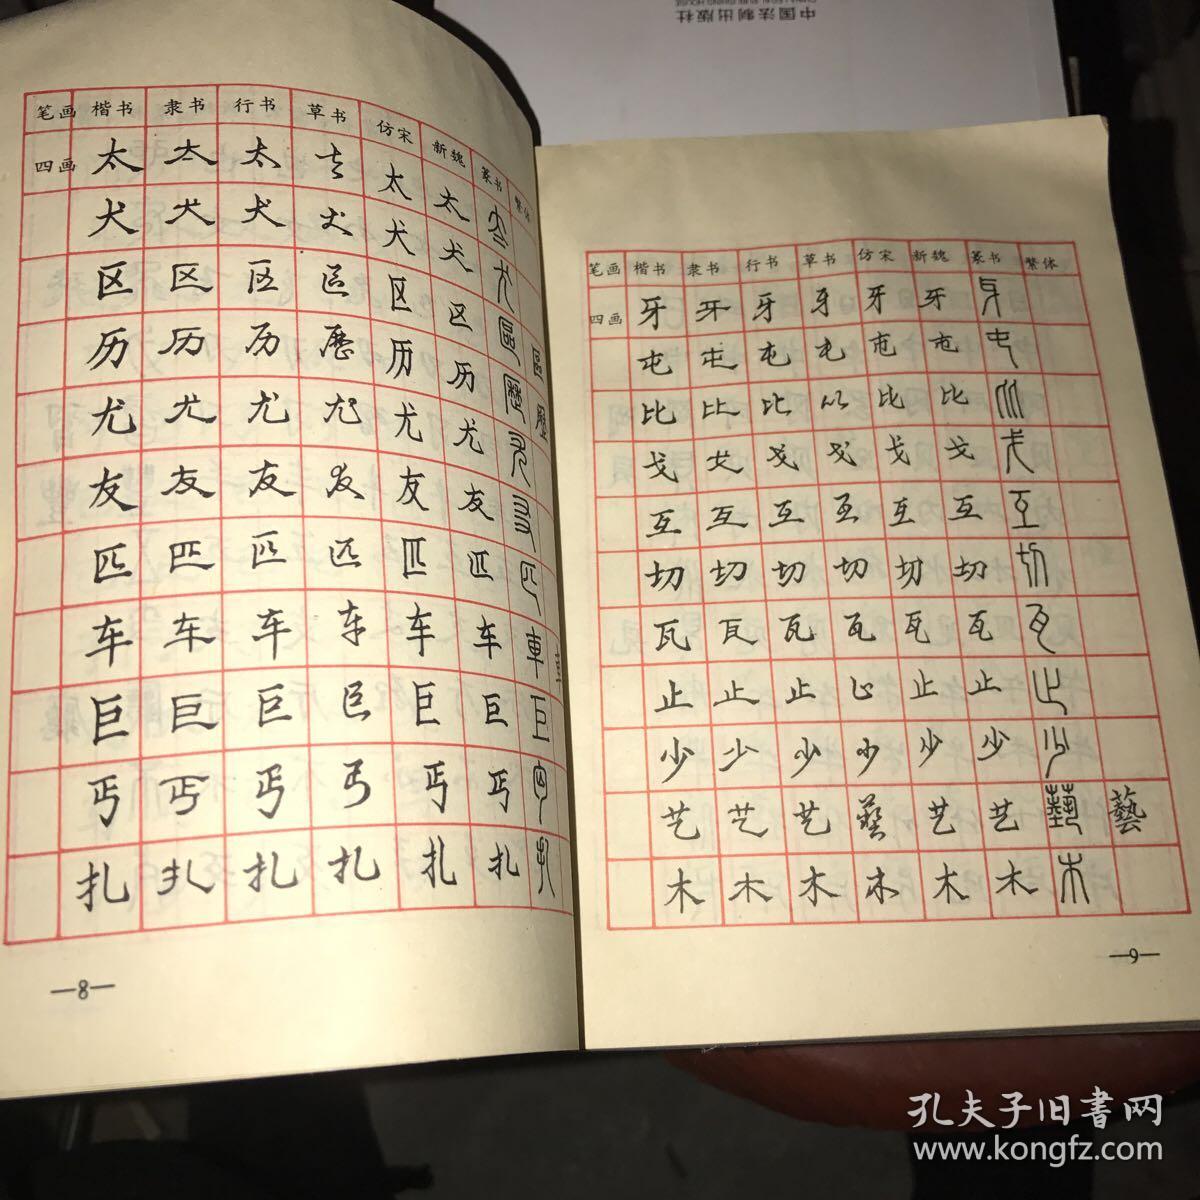 中国法制出版社
笔画 楷书 隶书 行书 草书 仿宋 新魏 篆书 繁体
四画 太 太 太 太 太 太 太
犬 犬 犬 犬 犬 犬 犬
区 区 区 区 区 区 區 區
历 历 历 歷 历 历 歷 歷
尤 尤 尤 尤 尤 尤 尤
友 友 友 友 友 友 友
匹 匹 匹 匹 匹 匹 匹
车 车 车 车 车 车 車 車
巨 巨 巨 巨 巨 巨 巨
丐 丐 丐 丐 丐 丐 丐
扎 扎 扎 扎 扎 扎 扎
—8—
笔画 楷书 隶书 行书 草书 仿宋 新魏 篆书 繁体
四画 牙 牙 牙 牙 牙 牙 牙
屯 屯 屯 屯 屯 屯 屯
比 比 比 比 比 比 比
戈 戈 戈 戈 戈 戈 戈
互 互 互 互 互 互 互
切 切 切 切 切 切 切
瓦 瓦 瓦 瓦 瓦 瓦 瓦
止 止 止 止 止 止 止
少 少 少 少 少 少 少
艺 艺 艺 藝 艺 艺 藝 藝
木 木 木 木 木 木 木
—9—
孔夫子旧書网
www.kongfz.com